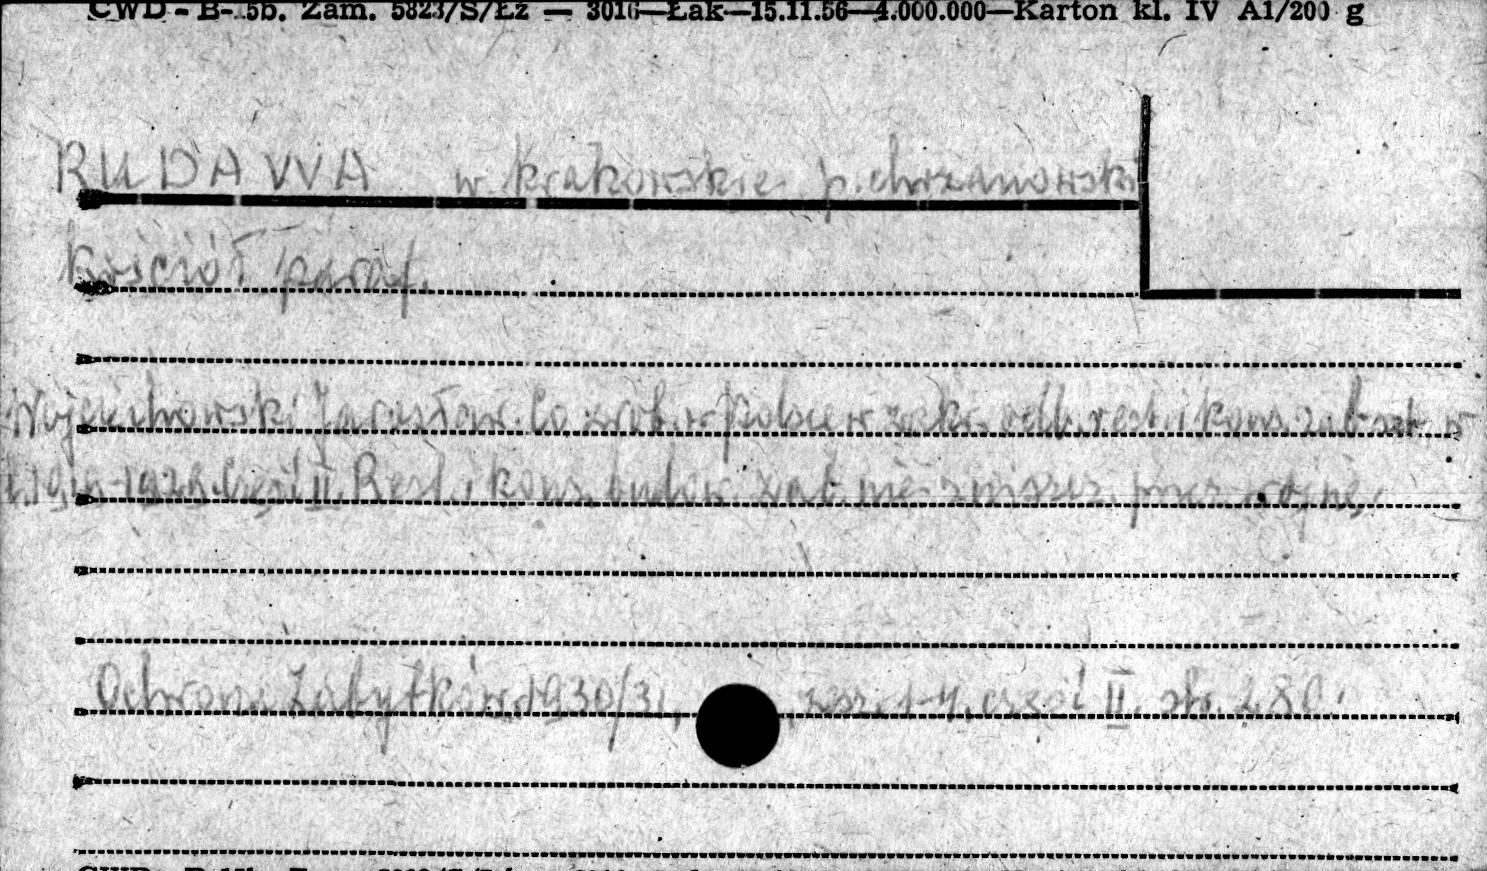 CWD - B- 5b. Zam. 5823/S/Łż — 3016—Łak—15.11.56—4.000.000—Karton kl. IV A1/200 g
RUDAWA w. krakowskie p. chrzanowski
kościół paraf.
Wojciechowski Jarosław. Co zrob. w Polsce w zakr. odb. rest. i kons. zab. szt. w
l. 1919-1929. Część II. Rest. i kons. budow. zab. nie zniszcz. przez wojnę.
Ochrona Zabytków 1930/31, , zesz. 1-4. część II. str. 280.